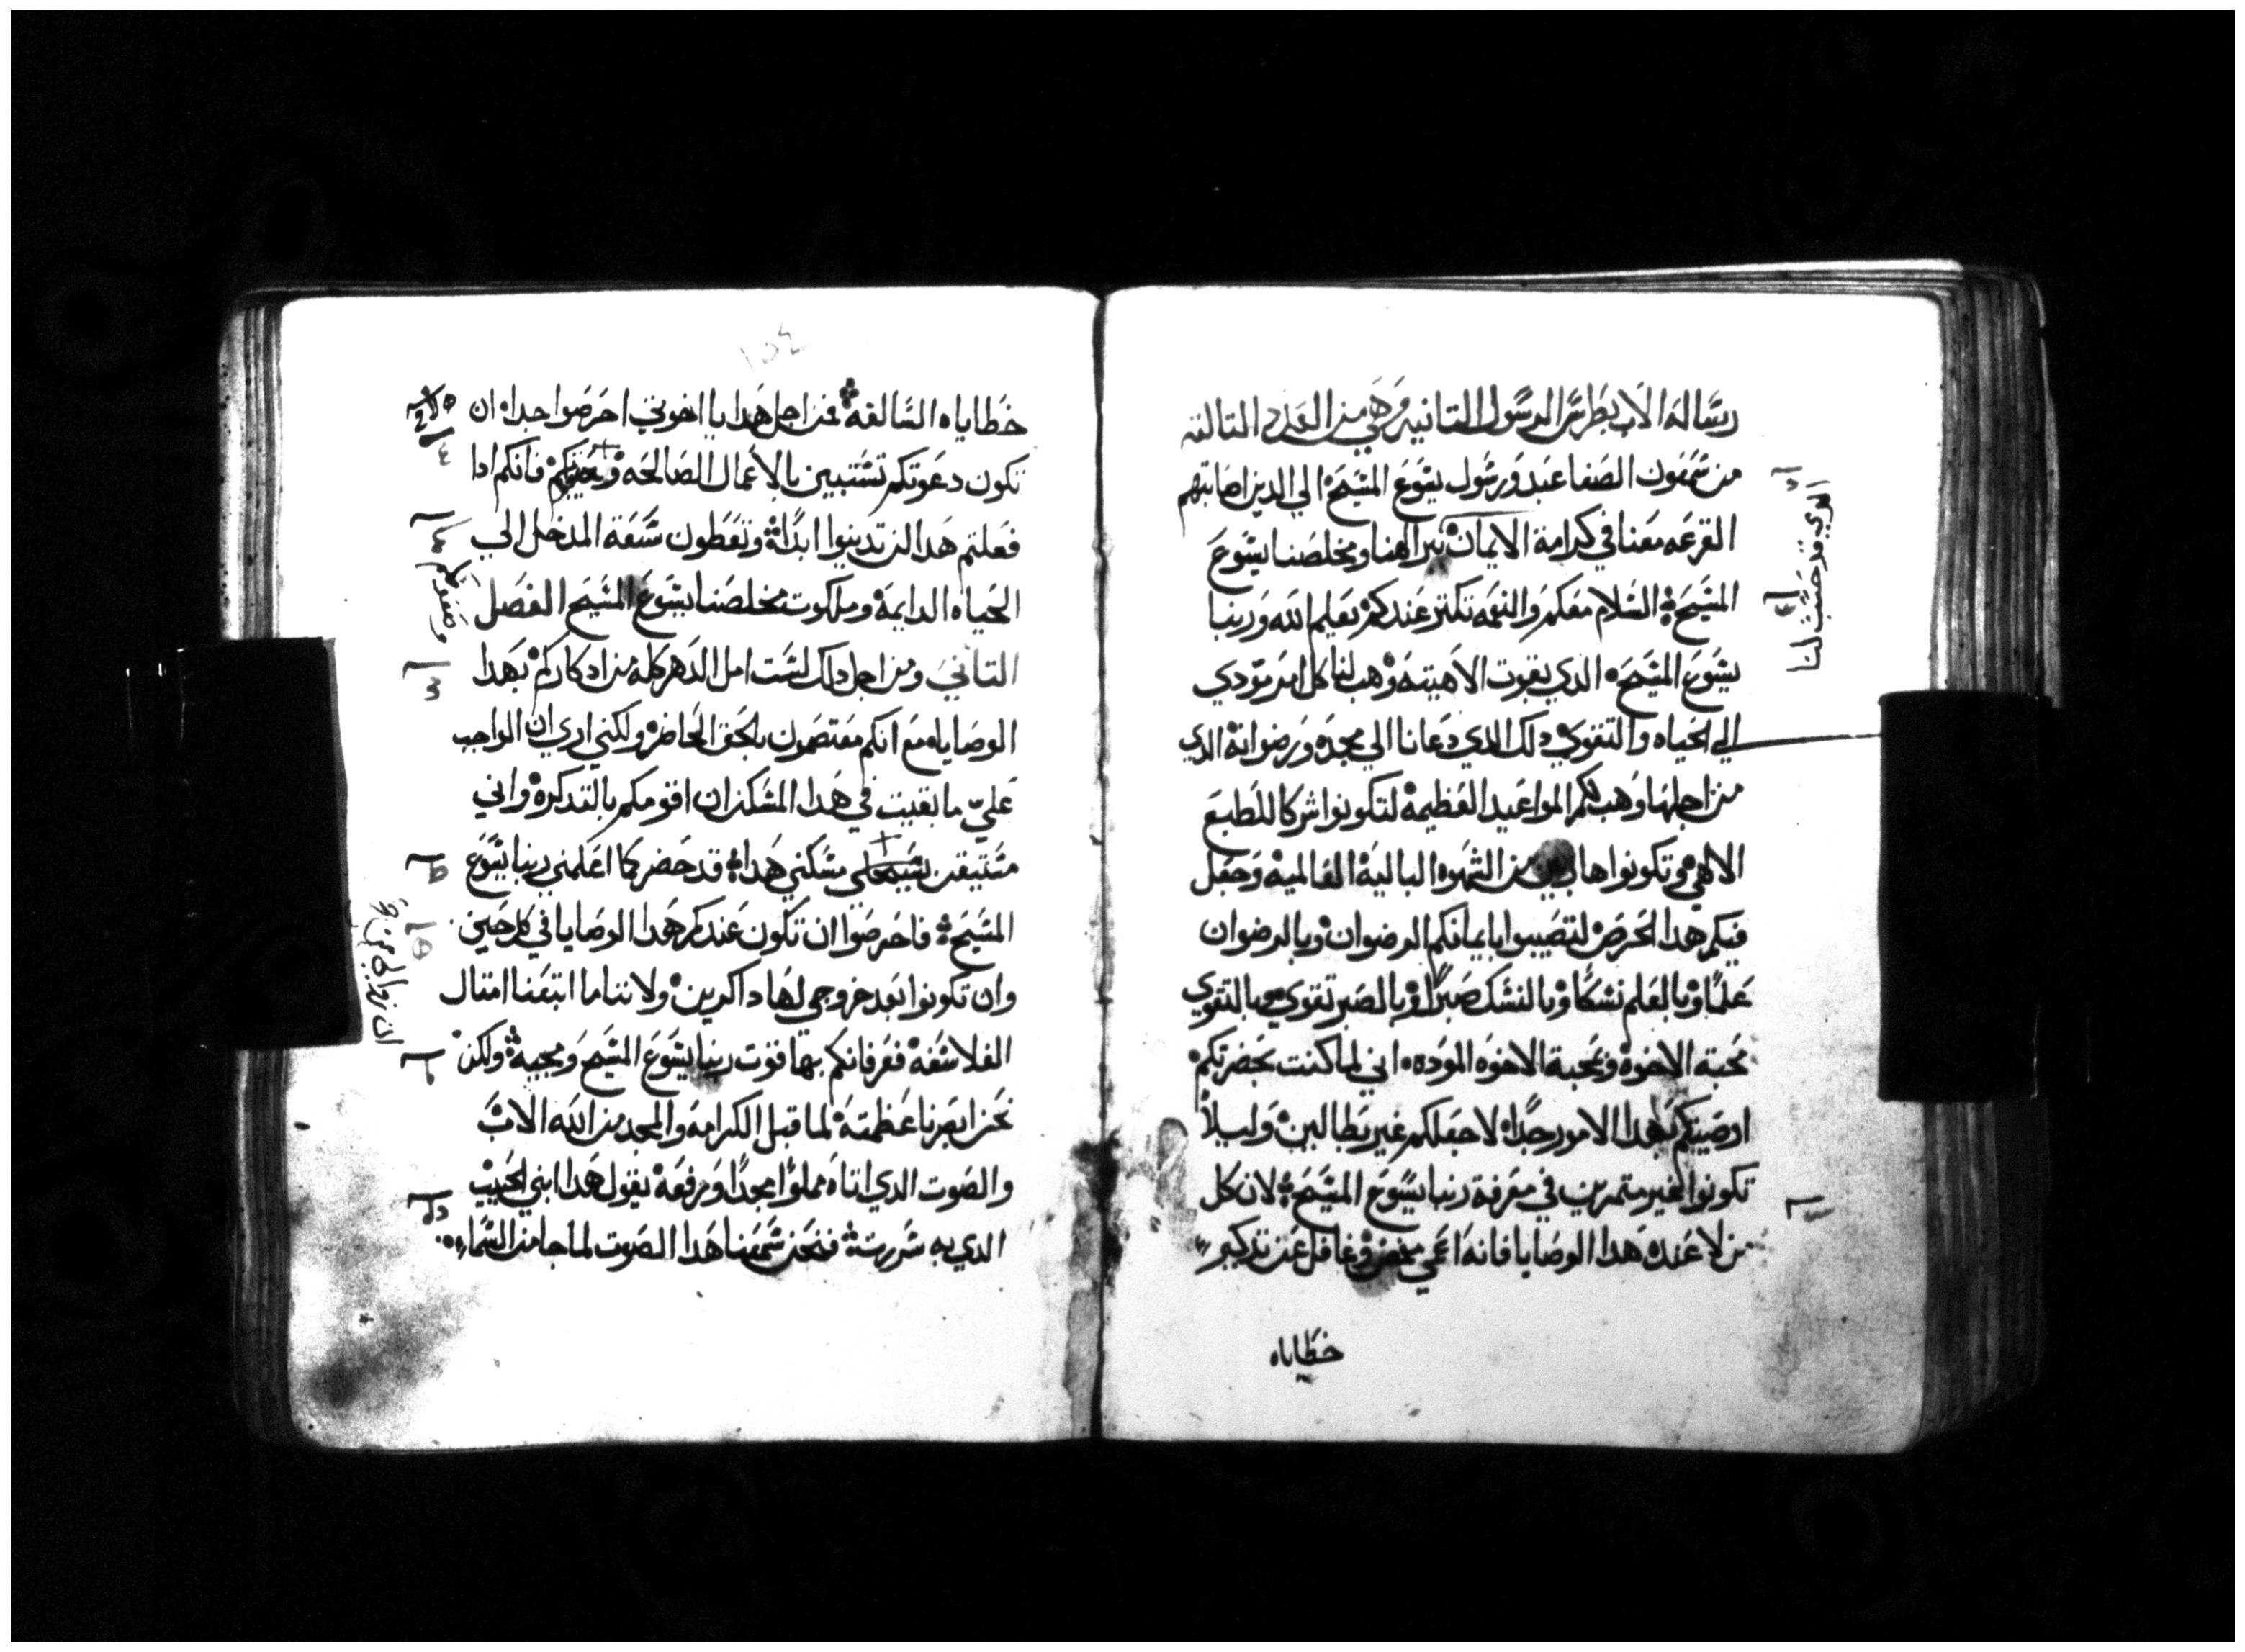 رساله الاب بطرس الرسول التانيه وهي من العدد التالته
من سمعون الصفا عبد ورسول يسوع المسيح الي الدين اصابتهم
القرعه معنا في كرامة الايمان ببر الهنا ومخلصنا يسوع
المسيح السلام معكم والنعمه تكتر عندكم بعلم الله وربنا
يسوع المسيح الدي بقوت الاهيته وهب لنا كل امر يودي
الي الحياه والتقوي دلك الدي دعانا الي مجده ورضوانه الدي
من اجلها وهب لكم المواعيد العظيمه لتكونوا شركا للطبع
الالهي وتكونوا هاربين من الشهوه الباليه العالميه وجعل
فيكم هدا الحرص لتصيبوا بايمانكم الرضوان وبالرضوان
علمًا وبالعلم نسكًا وبالنسك صبرًا وبالصبر تقوي وبالتقوي
محبة الاخوه وبمحبة الاخوه الموده اني لما كنت بحضرتكم
اوصيتكم بهدا الامور جدًا لاجعلكم غير بطالين وليلا
تكونوا غير متمرين في معرفة ربنا يسوع المسيح لان كل
من لا عنده هدا الوصايا فانه اعمي مغمض وغافل عن تدكير
خطاياه
الدي قد حسب لنا
١٥٤
خطاياه السالفه فمن اجل هدا يا اخوتي احرصوا جدا ان
تكون دعوتكم تستبين بالاعمال الصالحه فانكم ادا
فعلتم هدا لن تدينوا ابدًا وتعطون سعة المدخل الي
الحياه الدايمه وملكوت مخلصنا يسوع المسيح الفصل
التاني ومن اجل دلك لست امل الدهر كله من ادكاركم بهدا
الوصايا مع انكم معتصمون بالحق الحاضر ولكني اري ان الواجب
عليّ ما بقيت في هدا المسكن ان اقومكم بالتدكره واني
متيقن مسكني هدا قد حضر كما اعلمني ربنا يسوع
المسيح فاحرصوا ان تكون عندكم هدا الوصايا في كل حين
وان تكونوا بعد خروجي لها داكرين ولاننا ما اتبعنا امتال
الفلاسفه فعرفانكم بها قوت ربنا يسوع المسيح ومجيه ولكن
نحن ابصرنا عظمته لما قبل الكرامه والمجد من الله الاب
والصوت الدي اتاه مملوًا مجدًا ورفعه يقول هدا ابني الحبيب
الدي به سررت فنحن سمعنا هدا الصوت لما جا من السماء
وصفوتكم